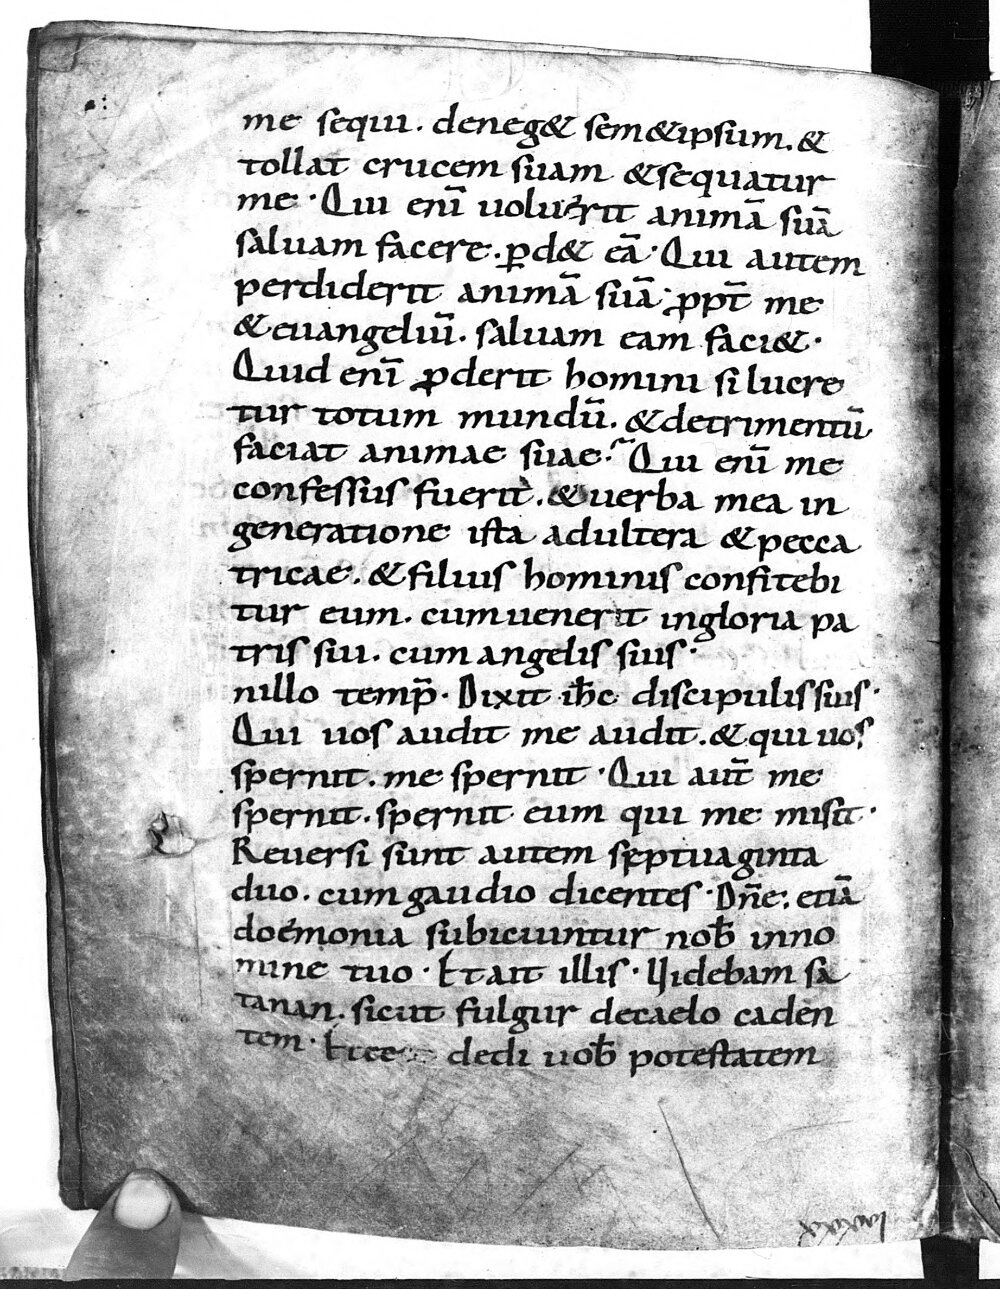 me sequi. deneg& sem&ipsum. &
tollat crucem suam &sequatur
me · Qui eni̅ uoluerit animā suā
saluam facere. ꝑd& eā · Qui autem
perdiderit animā suā · ꝓpt̅ me
&euangeliu̅. saluam eam faci&·
Quid eni̅ ꝓderit homini si lucre
tur totum mundū. &detrimentū
faciat animae suae · Qui eni̅ me
confessus fuerit. &uerba mea in
generatione ista adultera &pecca
tricae. &filius hominis confitebi
tur eum. cumuenerit ingloria pa
tris sui. cum angelis suis ·
nillo temp̅ · Dixit ih̅c discipulis suis ·
Qui uos audit me audit. &qui uos
spernit. me spernit · Qui aut̅ me
spernit. spernit eum qui me misit ·
Reuersi sunt autem septuaginta
duo. cum gaudio dicentes · Dn̅e. etiā
doemonia subiciuntur nob̅ inno
mine tuo · Et ait illis · Uidebam sa
tanan. sicut fulgur decaelo caden
tem · Ecce dedi uob̅ potestatem